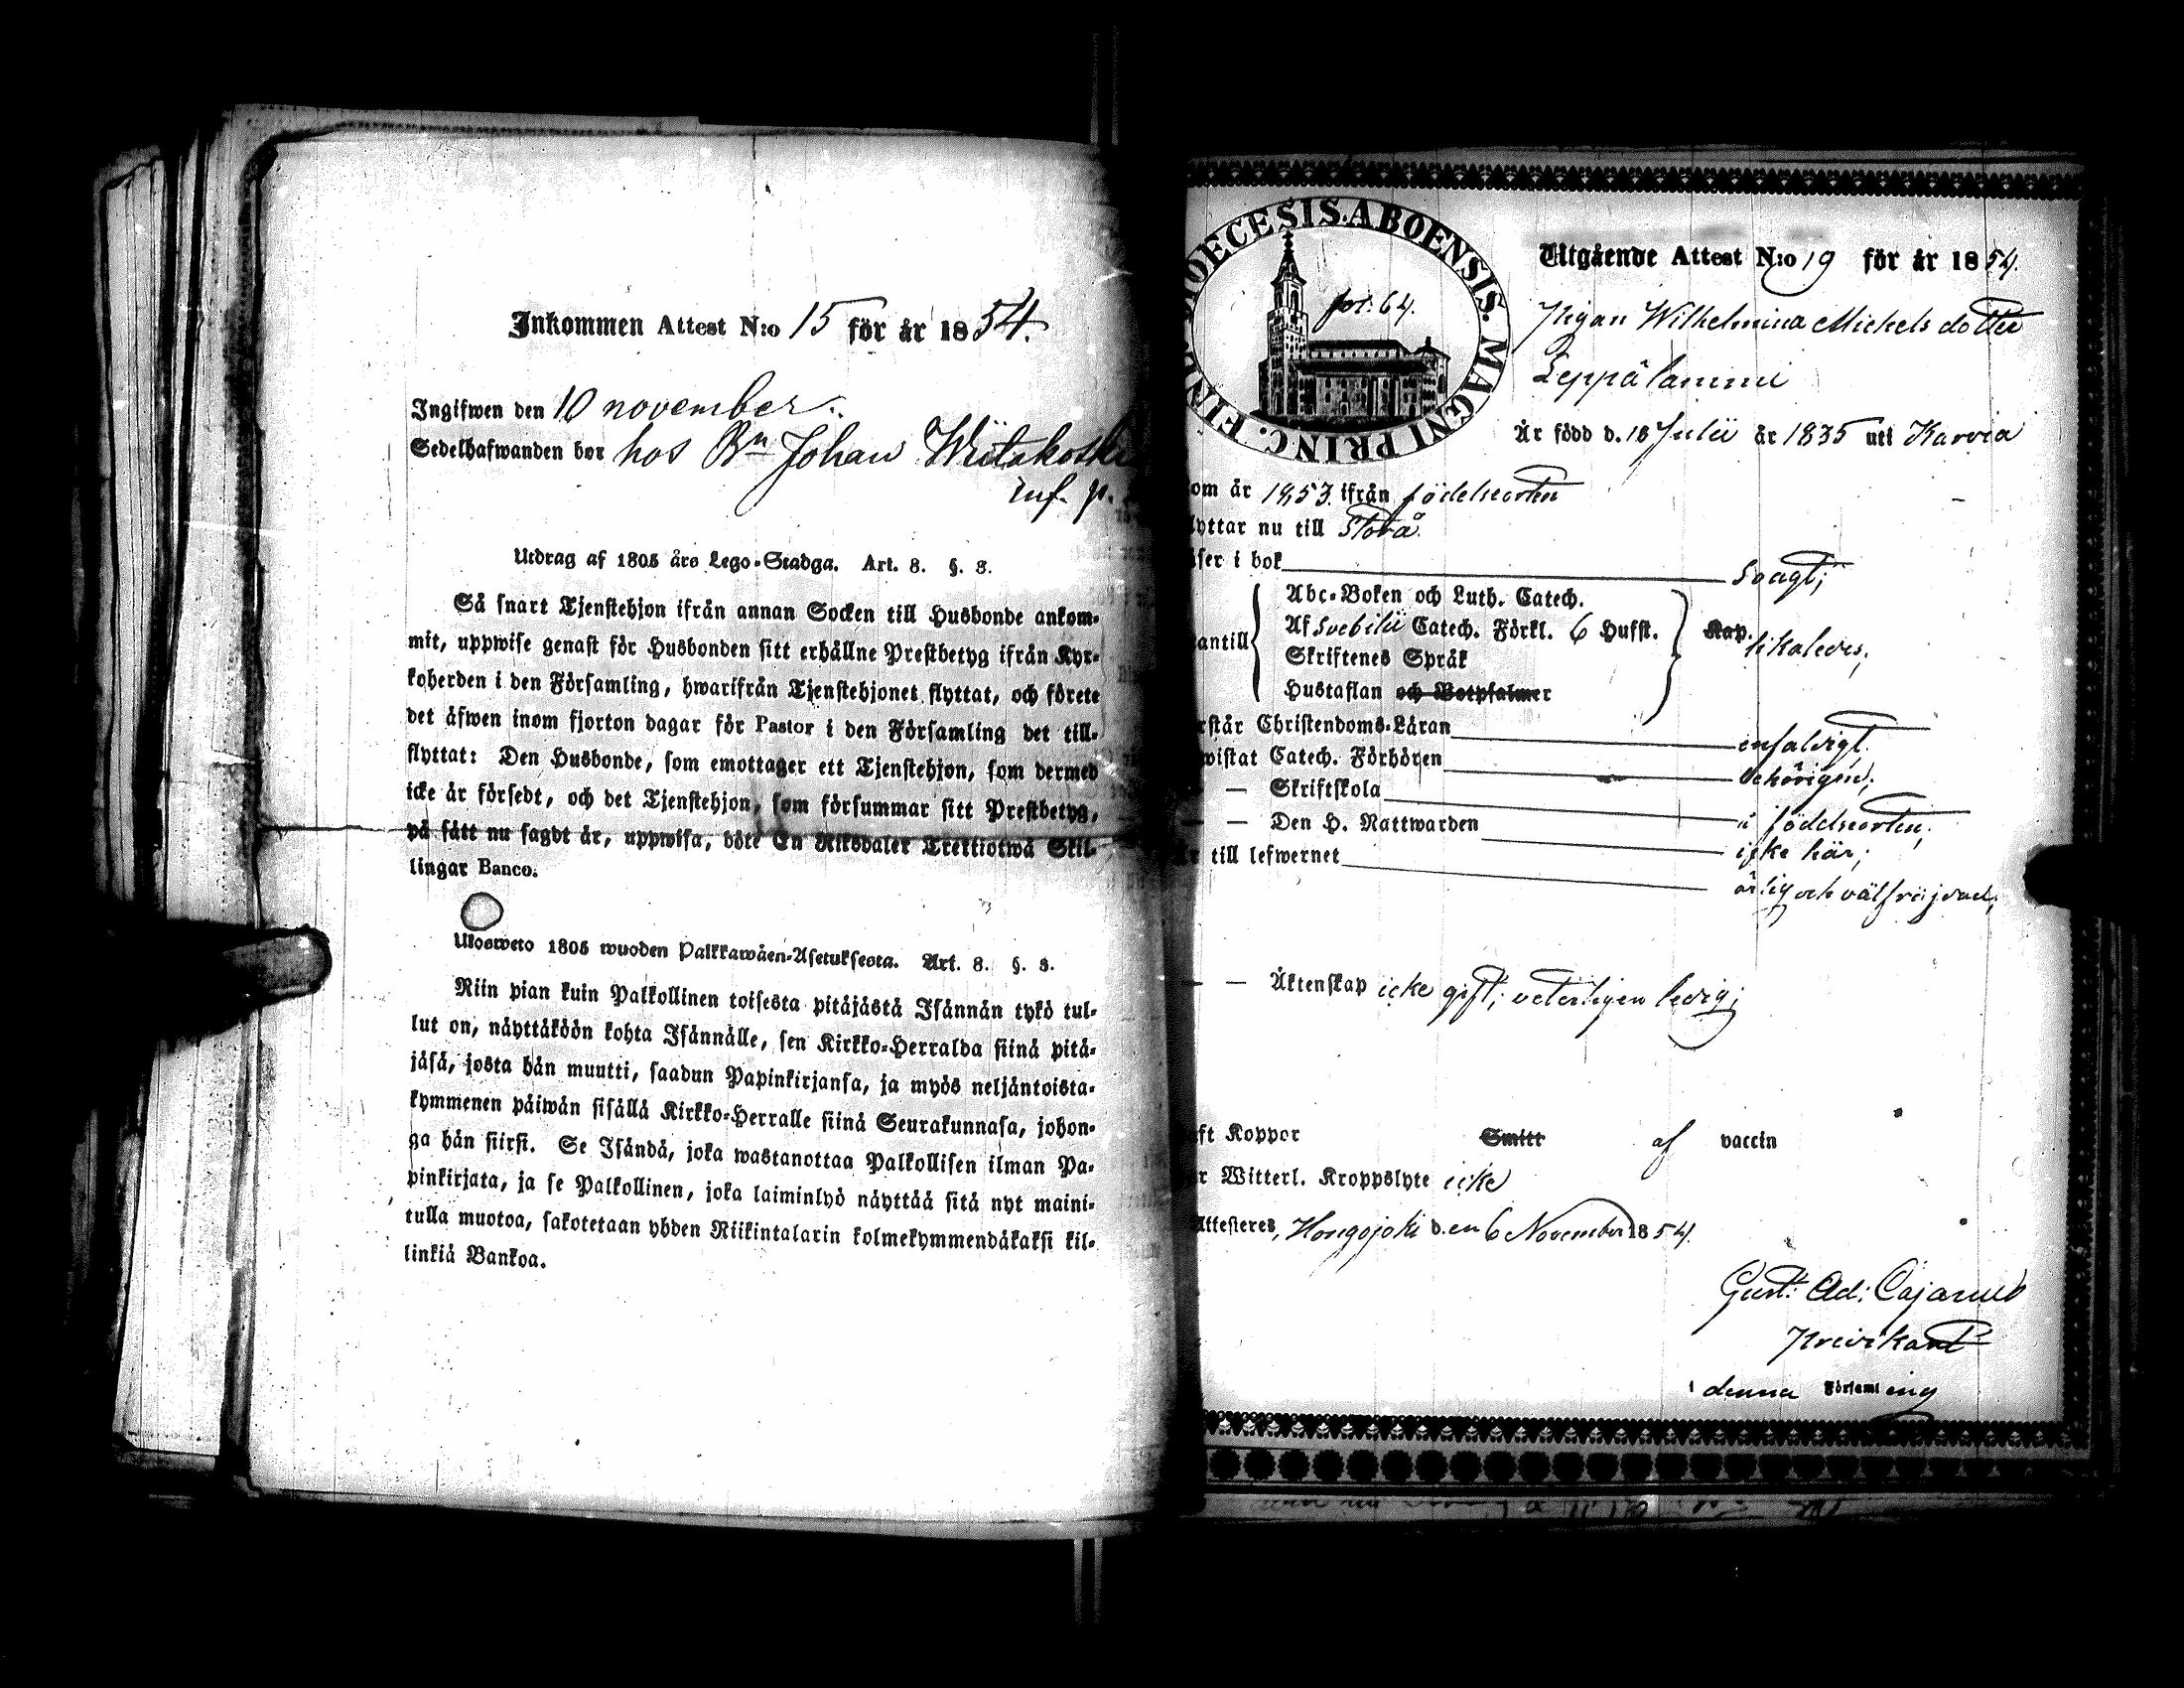 Inkommen Attest N:o 15 för år 1854.
Ingifwen den 10 november.
Sedelhafwanden bor hos Bn Johan Wiitakoski
inf. p.
Utdrag af 1805 års Lego-Stadga. Art. 8. §. 8.
Så snart Tjenstehjon ifrån annan Socken till Husbonde ankom-
mit, uppwise genast för Husbonden sitt erhållne Prestbetyg ifrån Kyr-
koherden i den Församling, hwarifrån Tjenstehjonet flyttat, och förete
det äfwen inom fjorton dagar för Pastor i den Församling det till-
flyttat: Den Husbonde, som emottager ett Tjenstehjon, som dermed
icke är försedt, och det Tjenstehjon, som försummar sitt Prestbetyg,
på sätt nu sagdt är, uppwisa, böte En Riksdaler Trettiotwå Skil-
lingar Banco.
Ulosweto 1805 wuoden Palkkawäen-Asetuksesta. Art. 8. §. 8.
Niin pian kuin Palkollinen toisesta pitäjästä Isännän tykö tul-
lut on, näyttäköön kohta Isännälle, sen Kirkko-Herralda siinä pitä-
jäsä, josta hän muutti, saadun Papinkirjansa, ja myös neljäntoista-
kymmenen päiwän sisällä Kirkko-Herralle siinä Seurakunnasa, johon-
ga hän siirsi. Se Isändä, joka wastanottaa Palkollisen ilman Pa-
pinkirjata, ja se Palkollinen, joka laiminlyö näyttää sitä nyt maini-
tulla muotoa, sakotetaan yhden Riikintalarin kolmekymmendäkaksi kil-
linkiä Bankoa.
DIOECESIS ABOENSIS. MAGNI PRINC. FINL.
fol. 64.
Utgående Attest N:o 19 för år 1854.
Pigan Wilhelmina Mickelsdotter
Leppälammi
Är född d. 18 Julii år 1835 uti Karvia
om år 1853 ifrån födelseorten
lyttar nu till Storå.
äser i bok svagt;
Abc-Boken och Luth. Catech.
Af Svebilii Catech. Förkl. 6 Hufst. Kap.
antill likaledes;
Skriftenes Språk
Hustaflan och Botpsalmer
rstår Christendoms-Läran enfaldigt.
wistat Catech. Förhören behörigen;
— Skriftskola i födelseorten;
— — Den H. Nattwarden icke här;
Är till lefwernet ärlig och välfräjdad;
— — Äktenskap icke gift; veterligen ledig;
ft Koppor Smitt af vaccin
r Witterl. Kroppslyte icke
Attesteres, Hongojoki d. en 6 November 1854.
Gust: Ad: Cajanus
Predikant
i denna Församling